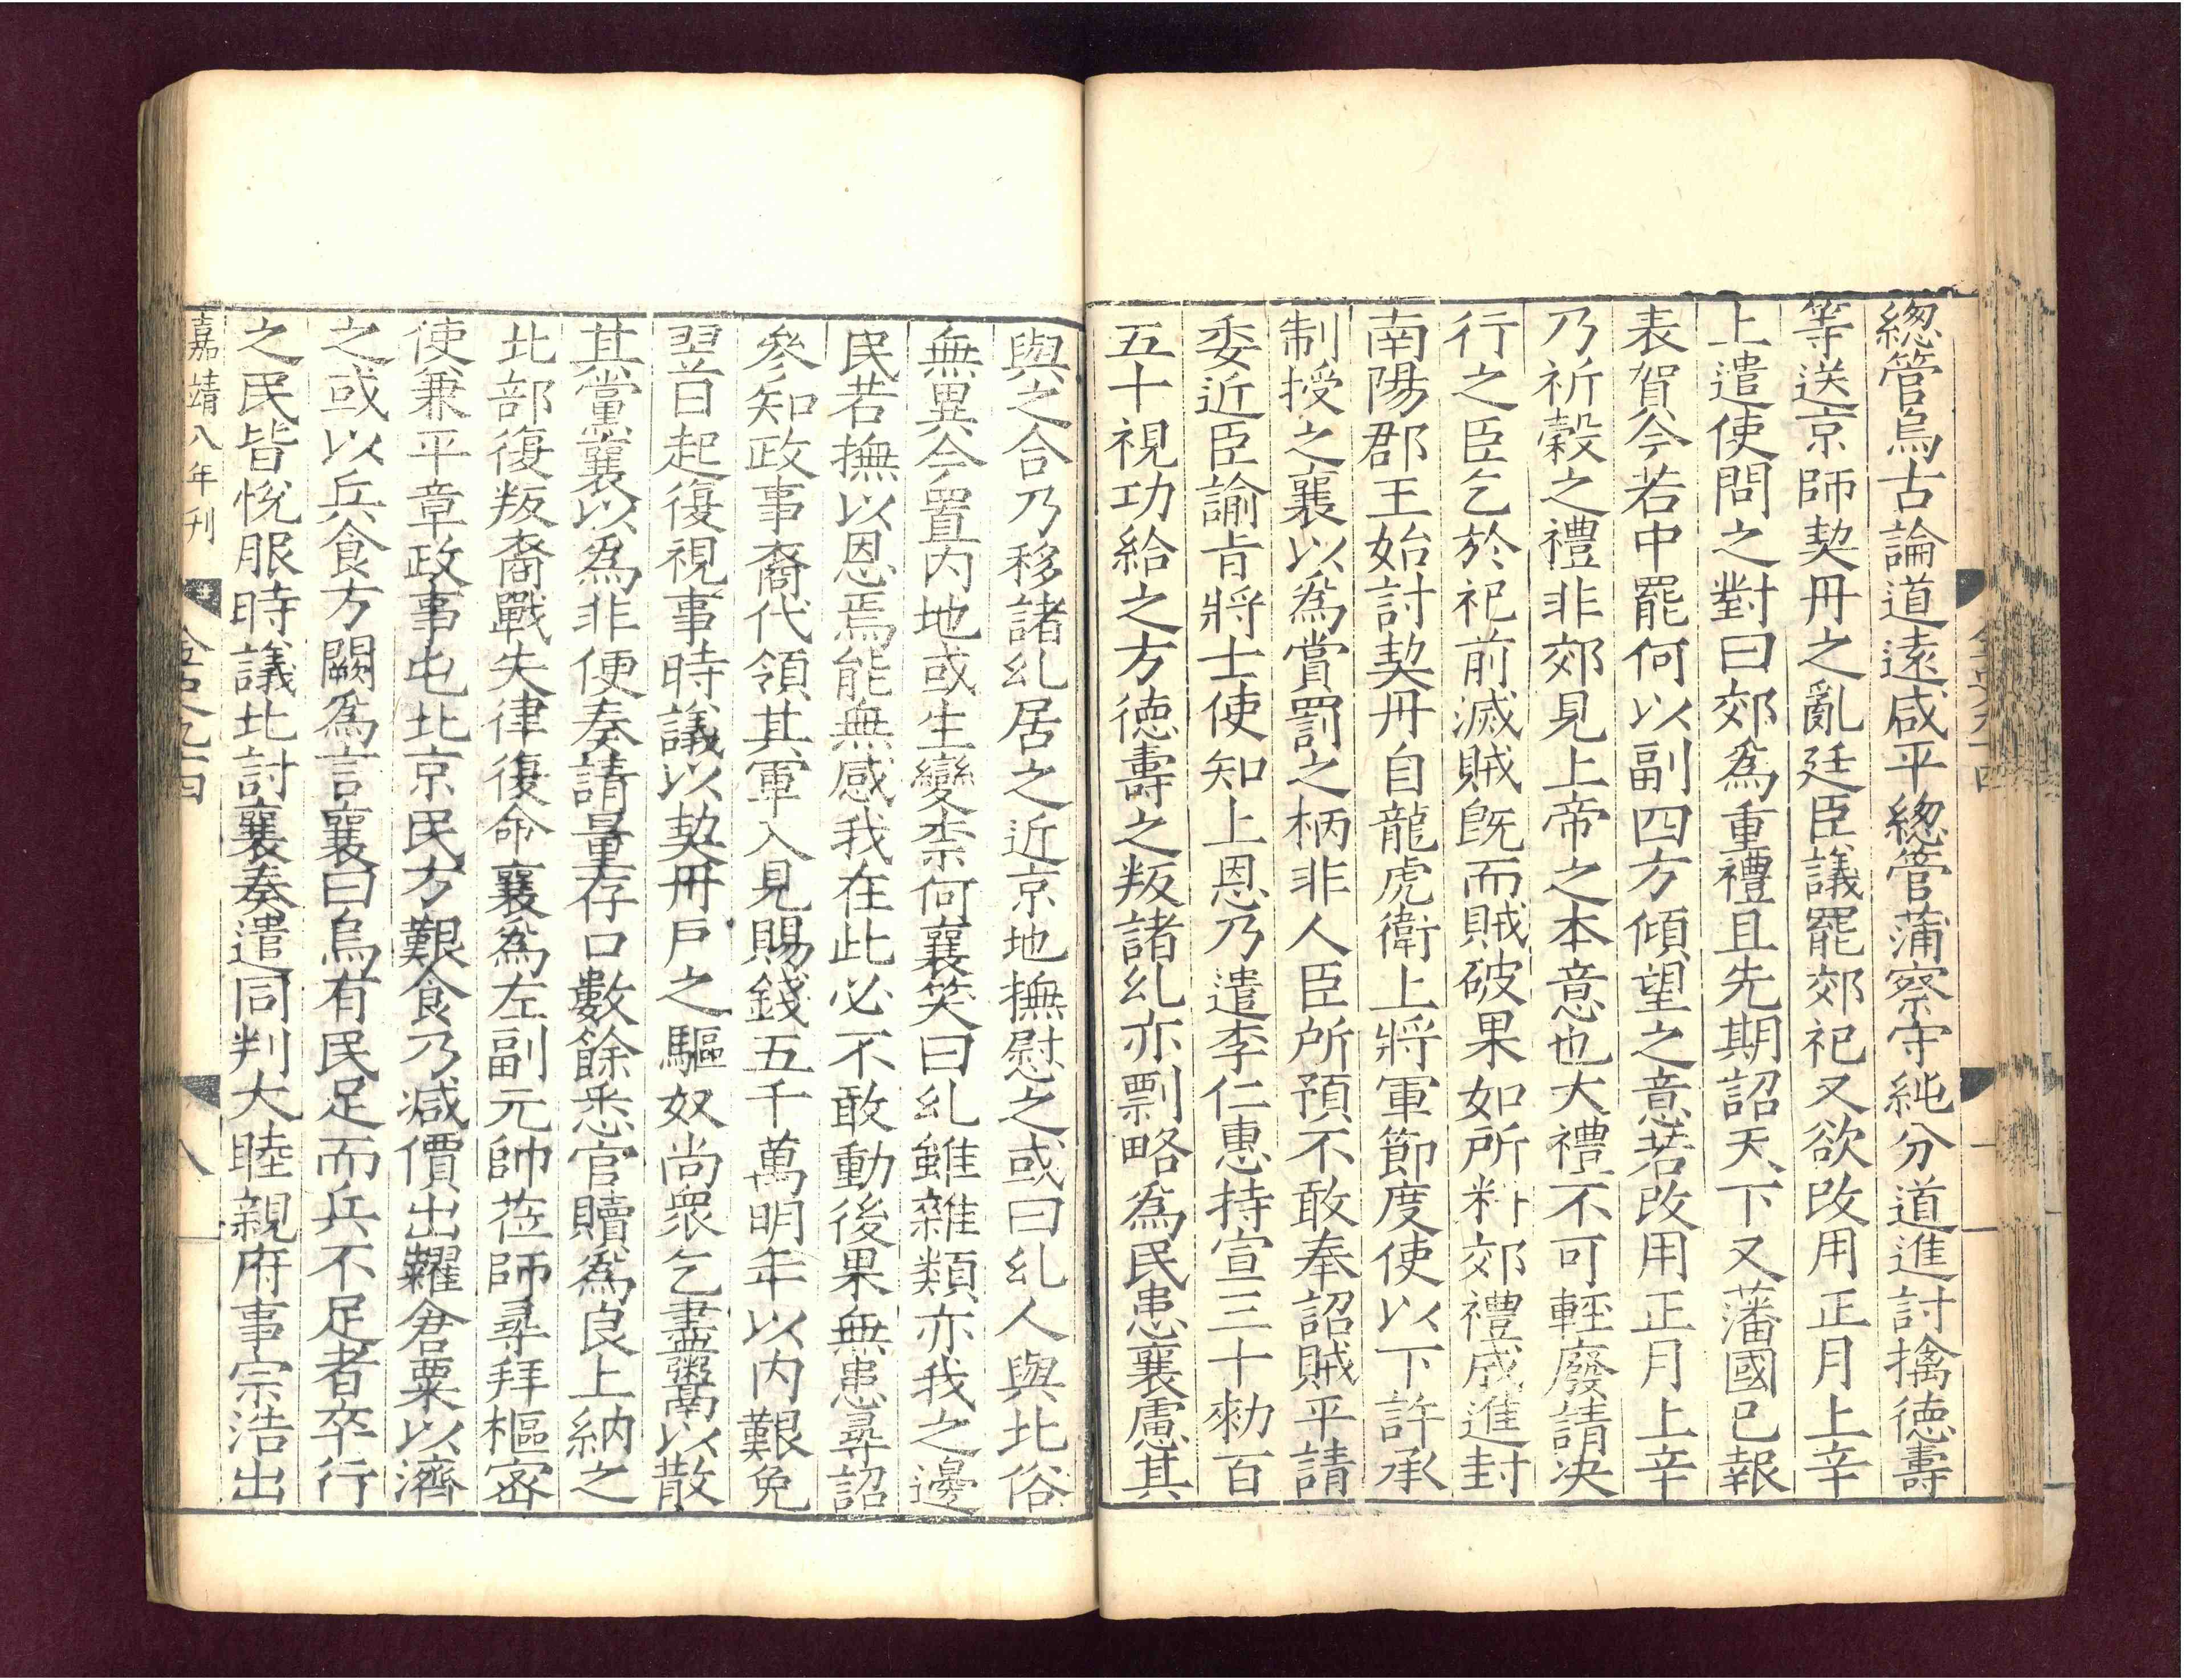 總管烏古論道遠咸平總管蒲察守純分道進討擒德壽
等送京師契丹之亂廷臣議罷郊祀又欲改用正月上辛
上遣使問之對曰郊為重禮且先期詔天下又藩國已報
表賀今若中罷何以副四方傾望之意若改用正月上辛
乃祈穀之禮非郊見上帝之本意也大禮不可輕廢請決
行之臣乞於祀前滅賊既而賊破果如所料郊禮成進封
南陽郡王始討契丹自龍虎衛上將軍節度使以下許承
制授之襄以為賞罰之柄非人臣所預不敢奉詔賊平請
委近臣諭旨將士使知上恩乃遣李仁惠持宣三十勑百
五十視功給之方德壽之叛諸乣亦剽略為民患襄慮其
與之合乃移諸乣居之近京地撫慰之或曰乣人與北俗
無異今置內地或生變柰何襄笑曰乣雖雜類亦我之邊
民若撫以恩焉能無感我在此必不敢動後果無患尋詔
參知政事裔代領其軍入見賜錢五千萬明年以內艱免
翌日起復視事時議以契丹戶之驅奴尚衆乞盡鬻以散
其黨襄以為非便奏請量存口數餘悉官贖為良上納之
北部復叛裔戰失律復命襄為左副元帥莅師尋拜樞密
使兼平章政事屯北京民方艱食乃減價出糶倉粟以濟
之或以兵食方闕為言襄曰烏有民足而兵不足者卒行
之民皆悅服時議北討襄奏遣同判大睦親府事宗浩出
嘉靖八年刊 金史九十四 八